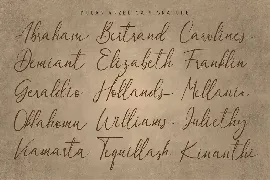 Abraham Bertrand Carolines
Demiant Elizabeth Franklin
Geraldio Hollands Millania
Oklahoma Williams Juliethy
Viamarta Tequillash Kinanthi